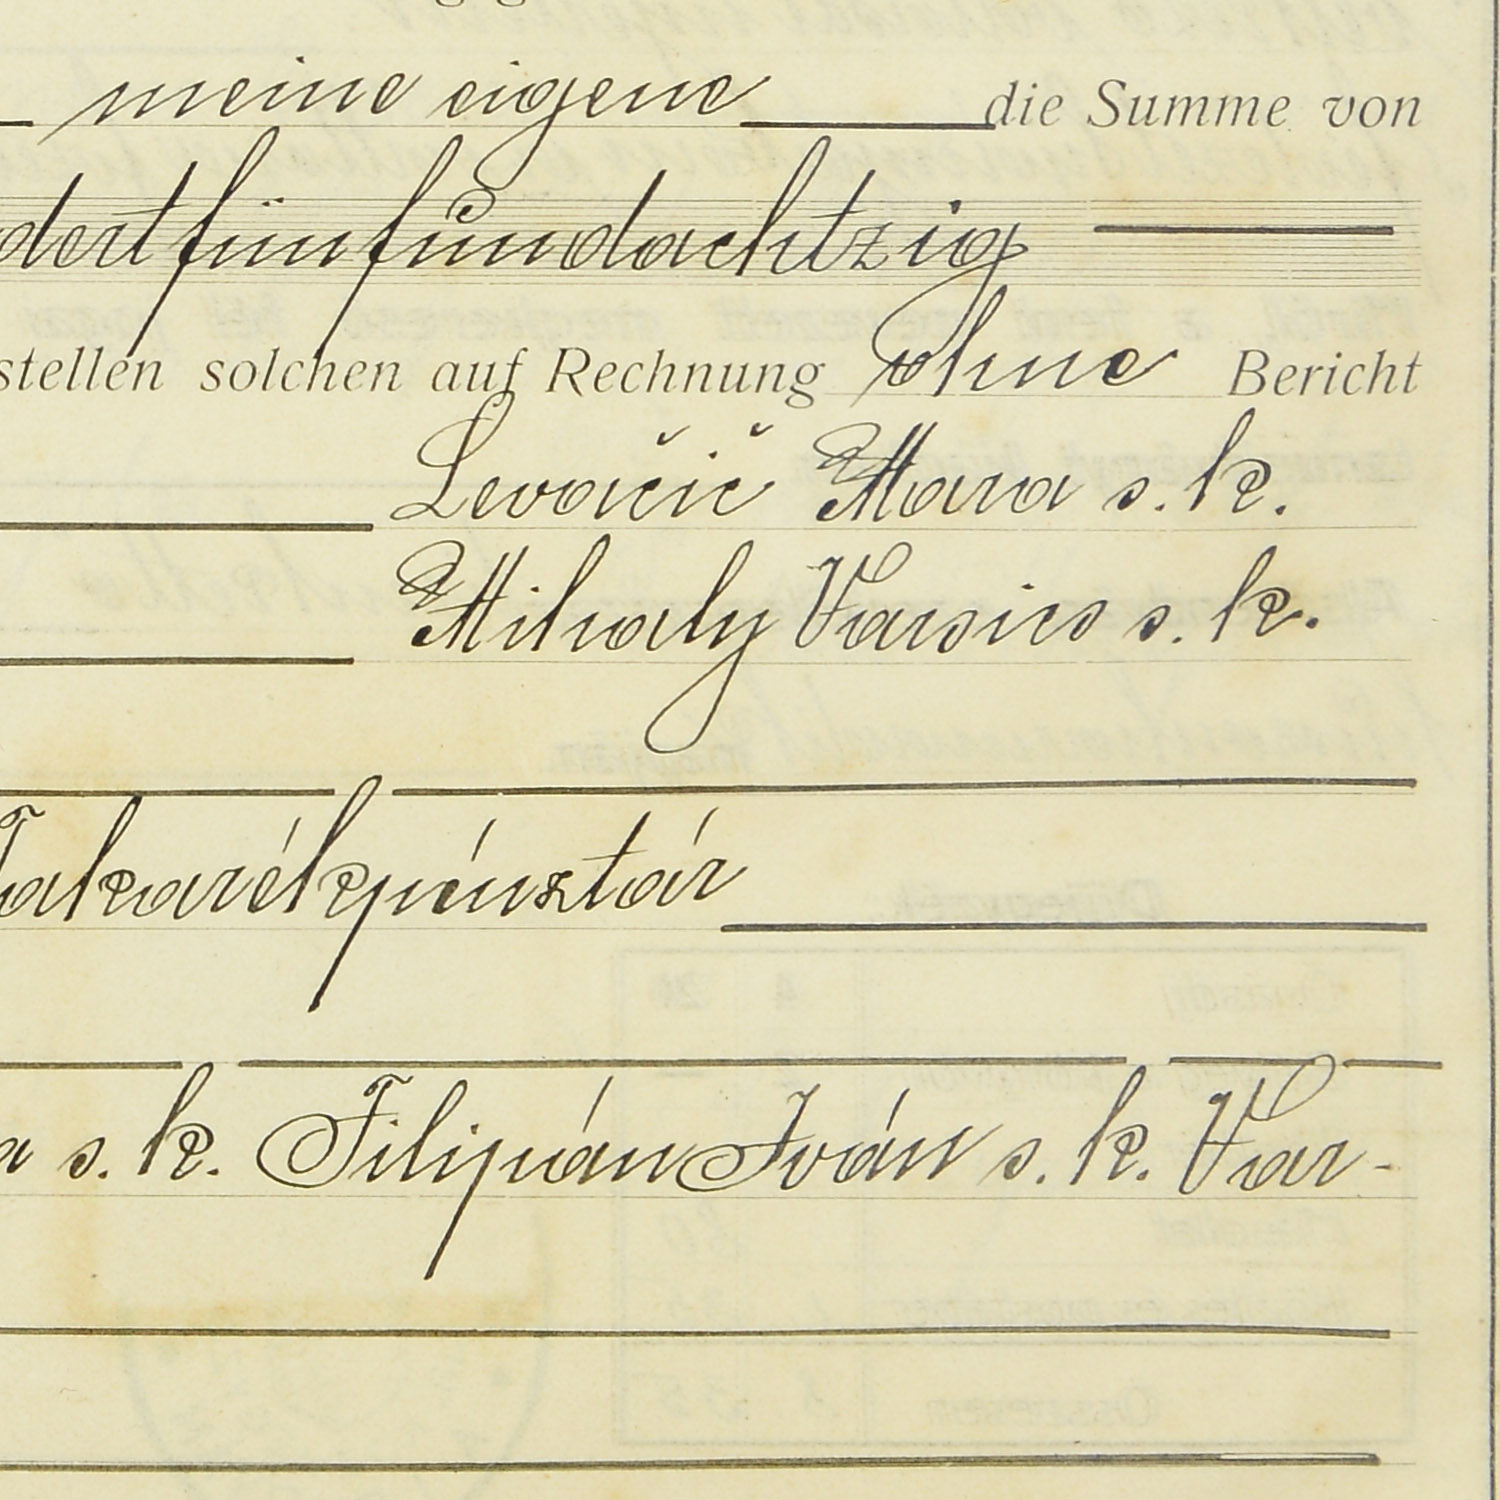 meine eigene die Summe von
dert fünfundachtzig
stellen solchen auf Rechnung ohne Bericht
Levačić Mara s. k.
Mihaly Varsics s. k.
Takarékpénztár
a s. k. Filipán Iván s. k. Var-